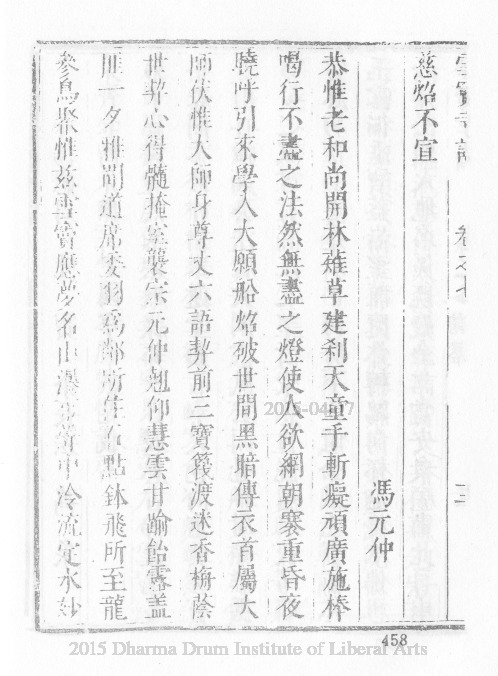 雪竇寺誌 卷之七
慈焰不宣
馮元仲
恭惟老和尚開林薙草建刹天童手斬癡頑廣施棒
喝行不盡之法然無盡之燈使人欲網朝褰重昏夜
曉呼引來學入大願船焰破世間黑暗傳衣首屬大
師伏惟大師身尊丈六語契前三寶筏渡迷香栴蔭
世契心得髓掩室襲宗元仲翹仰慧雲甘踰飴露蓋
匪一夕雅聞道席委羽為鄰所住石點鉢飛所至龍
參鳥聚惟茲雪竇應夢名山瀑 中冷流定水妙
2015-04-07
458
2015 Dharma Drum Institute of Liberal Arts